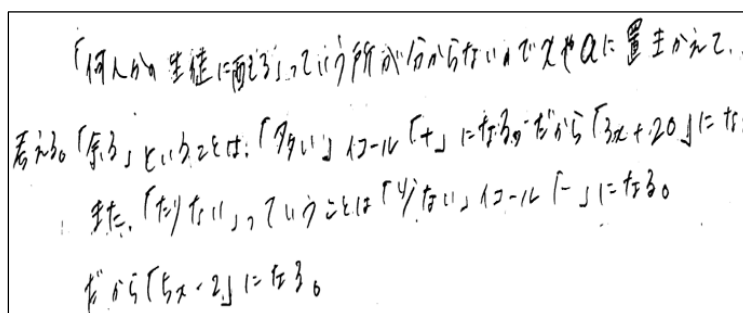 「何人かの生徒に配る」っていう所が分からないのでxやaに置きかえて、
考える。「余る」ということは、「多い」イコール「+」になる。だから「3x+20」にな
また、「たりない」っていうことは「少ない」イコール「-」になる。
だから「5x-2」になる。